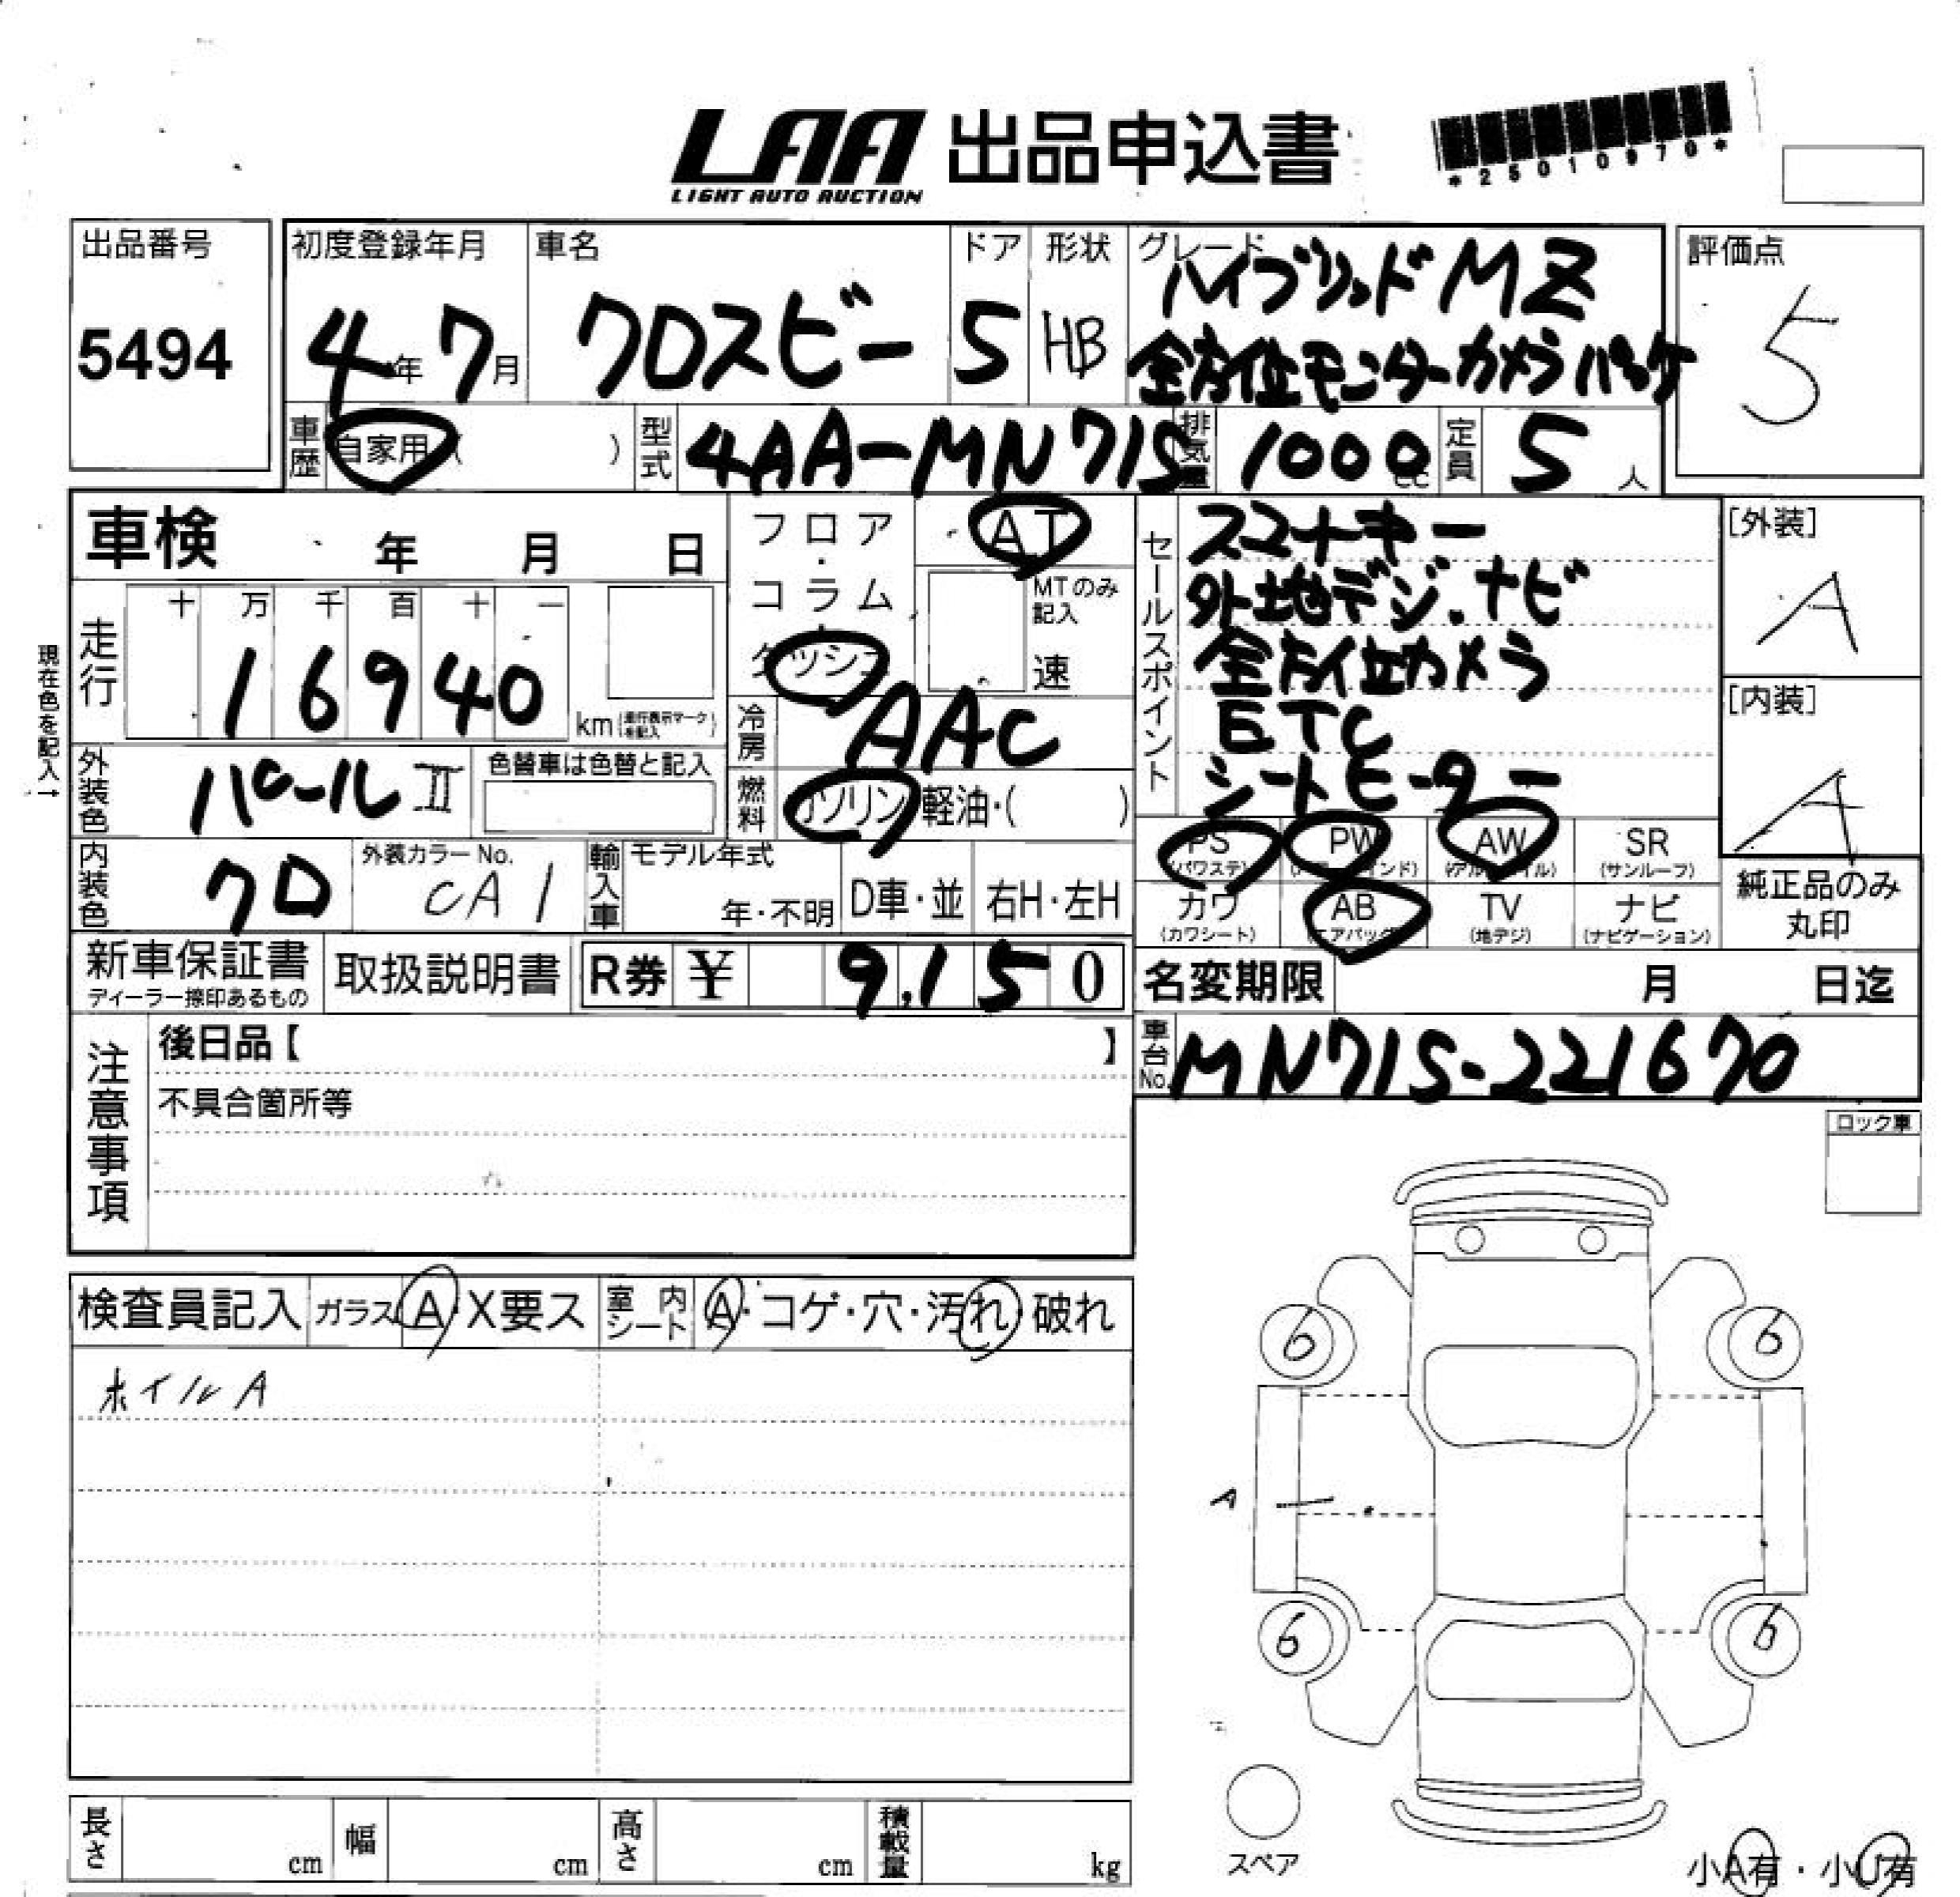 LAA 出品申込書
LIGHT AUTO AUCTION
*25010970*
出品番号
5494
初度登録年月
4年7月
車名
クロスビー
ドア
5
形状
HB
グレード
ハイブリッドMZ
全方位モニターカメラパッケ
評価点
5
車歴
自家用 ( )
型式
4AA-MN71S
排気量
1000cc
定員
5人
車検 年 月 日
フロア・コラム・ダッシュ
AT
MTのみ記入
速
セールスポイント
スマートキー
外地デジ.ナビ
全方位カメラ
ETC
シートヒーター
[外装]
A
[内装]
A
現在色を記入→
走行
十 万 千 百 十 一
16940
km(走行表示マークを記入)
冷房
AAC
外装色
パールⅡ
色替車は色替と記入
燃料
ガソリン・軽油・( )
PS (パワステ)
PW (パワーウインド)
AW (アルミホイル)
SR (サンルーフ)
カワ (カワシート)
AB (エアバッグ)
TV (地デジ)
ナビ (ナビゲーション)
純正品のみ
丸印
内装色
クロ
外装カラーNo.
CA1
輸入車
モデル年式
年・不明
D車・並
右H・左H
新車保証書
ディーラー捺印あるもの
取扱説明書
R券 ¥ 9,150
名変期限 月 日迄
注意事項
後日品【 】
不具合箇所等
車台No.
MN71S-221670
ロック車
検査員記入
ガラス A・X要ス
室内シート A・コゲ・穴・汚れ・破れ
ホイルA
6
6
A
6
6
スペア
小A有・小U有
長さ cm
幅 cm
高さ cm
積載量 kg